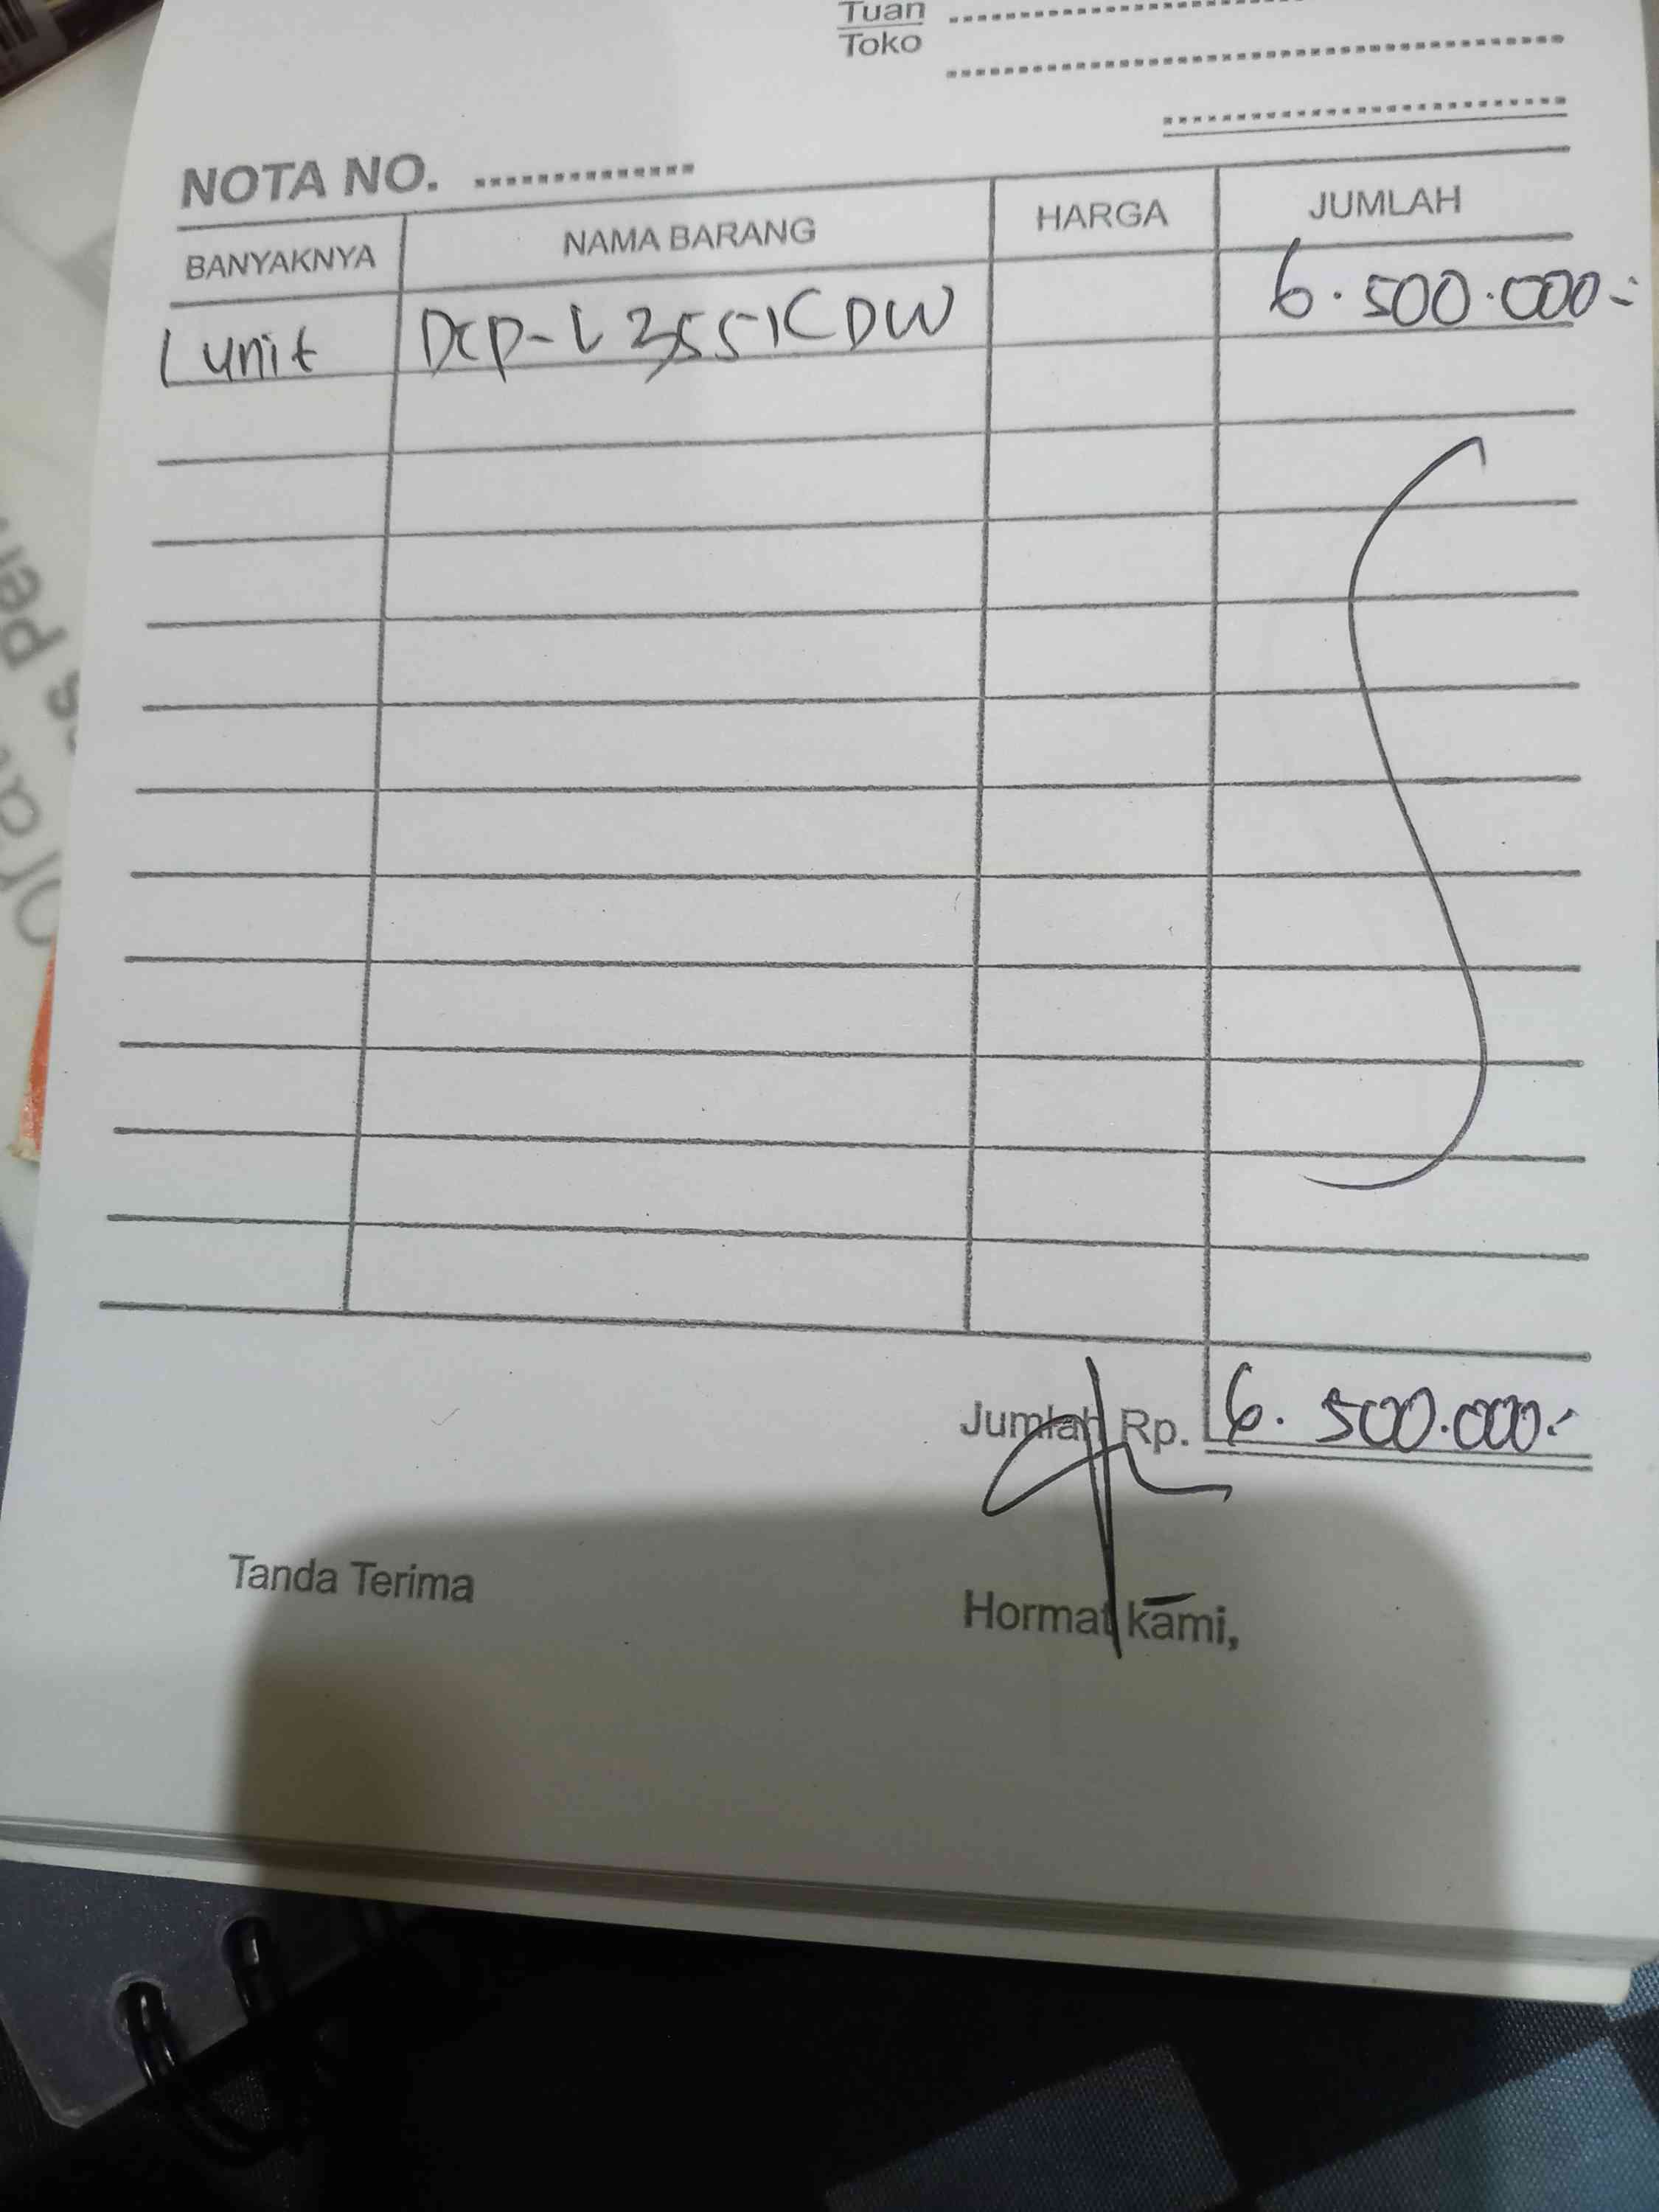 Tuan
Toko
NOTA NO. ..............
BANYAKNYA NAMA BARANG HARGA JUMLAH
1 unit DCP-L3551CDW 6.500.000:-
Jumlah Rp. 6.500.000:-
Tanda Terima Hormat kami,